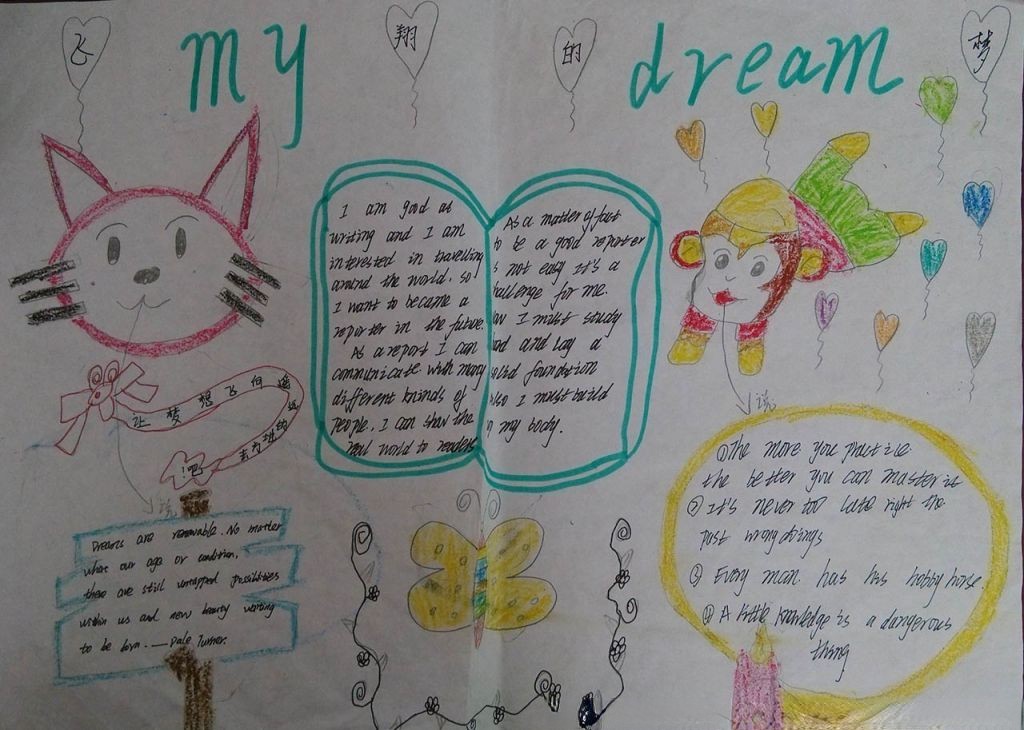 飞 翔 的 梦
my dream
I am good at
writing and I am
interested in travelling
around the world. so
I want to became a
reporter in the future.
As a report I can
communicate with many
different kninds of
people, I can show the
real world to readers
As a matter of fact
to be a good reporter
is not easy It's a
hallenge for me.
I must study
and and lay a
solid foundation
also I must build
my body.
让 梦 想 飞 向 遥 远 的
吧!
Dreams are renewable. No matter
what our age or condition,
there are still untapped possibilities
within us and new beauty waiting
to be born. — Dale Turner.
①The more you practice
the better you can master it
② It's never too late right the
past wrongdoings
③ Every man has his hobby horse
④ A little knowledge is a dangerous
thing